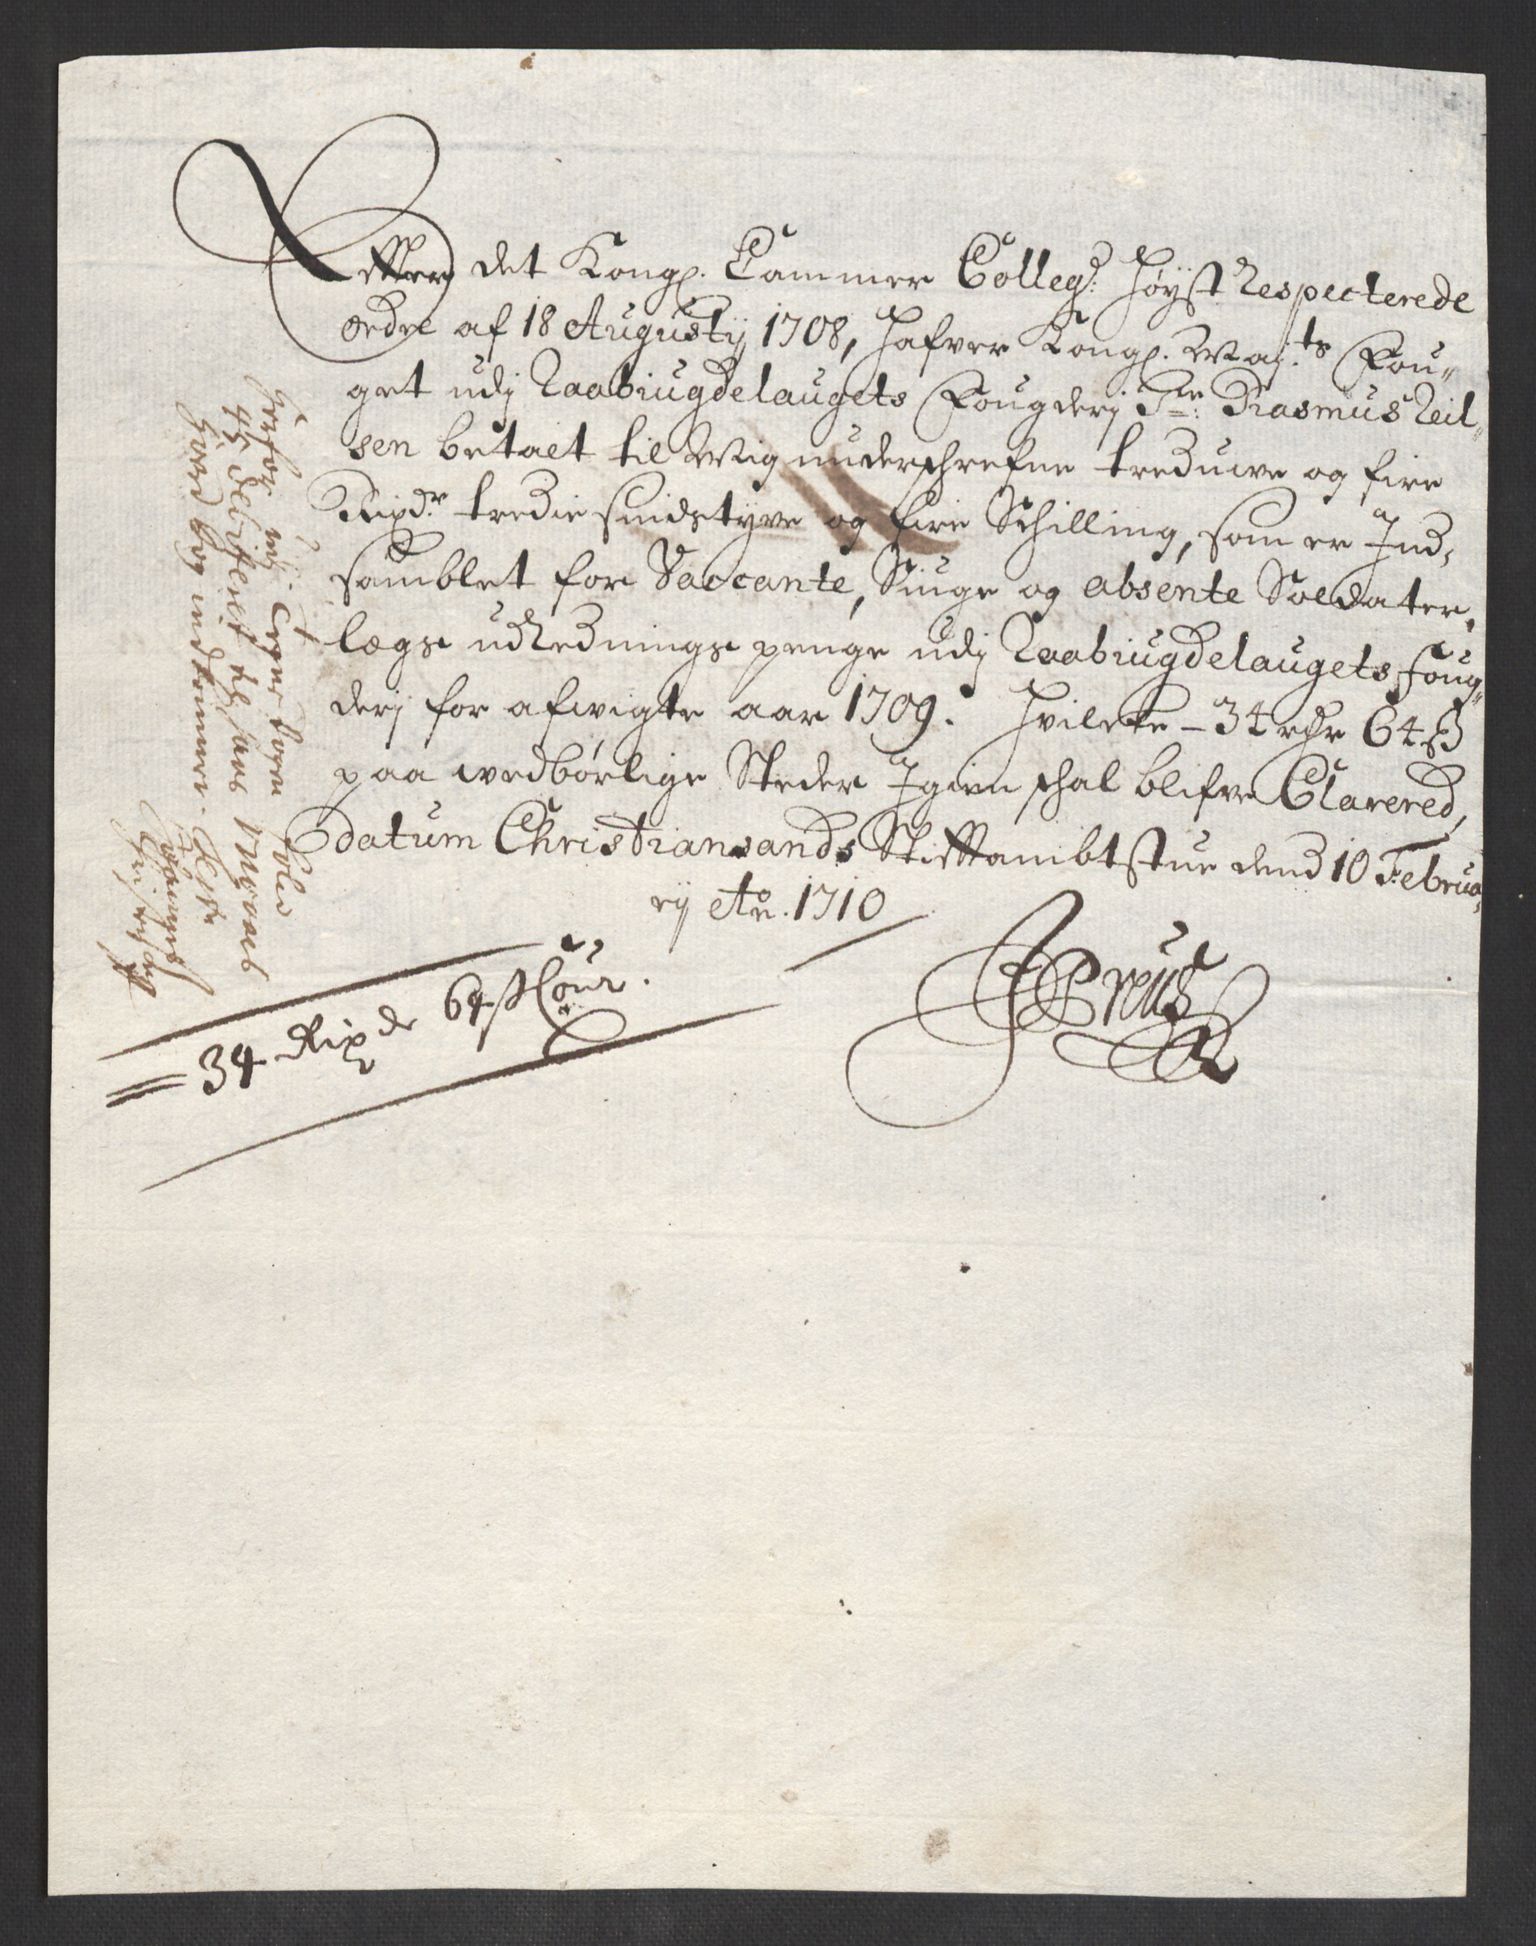 Efter det Kongl. Cammer Colleg: Høyst Respecterede
ordre af 18 Augustij 1708, Hafver Kongl. Maj:ts Fou-
get udj Raabiugdelaugets Fougderj Sr: Rasmus Neil-
sen betalt til Mig underschrefne trediuve og fire
Rixdr tredie sindstyve og fire Schilling, som er Ind-
samblet for Vaccante, Siuge og absente Soldater,
lægs udRednings penge udj Raabiugdelaugets Foug-
derj for afvigte aar 1709. Hvilcke - 34 rdr 64 ß
paa vedbørlige Steder Igien schal blifve Clarered,
Datum Christiansands Stiftambtstue dend 10 Februa-
rij Ao. 1710
JPreus
34 Rixdr 64 ß Cour.